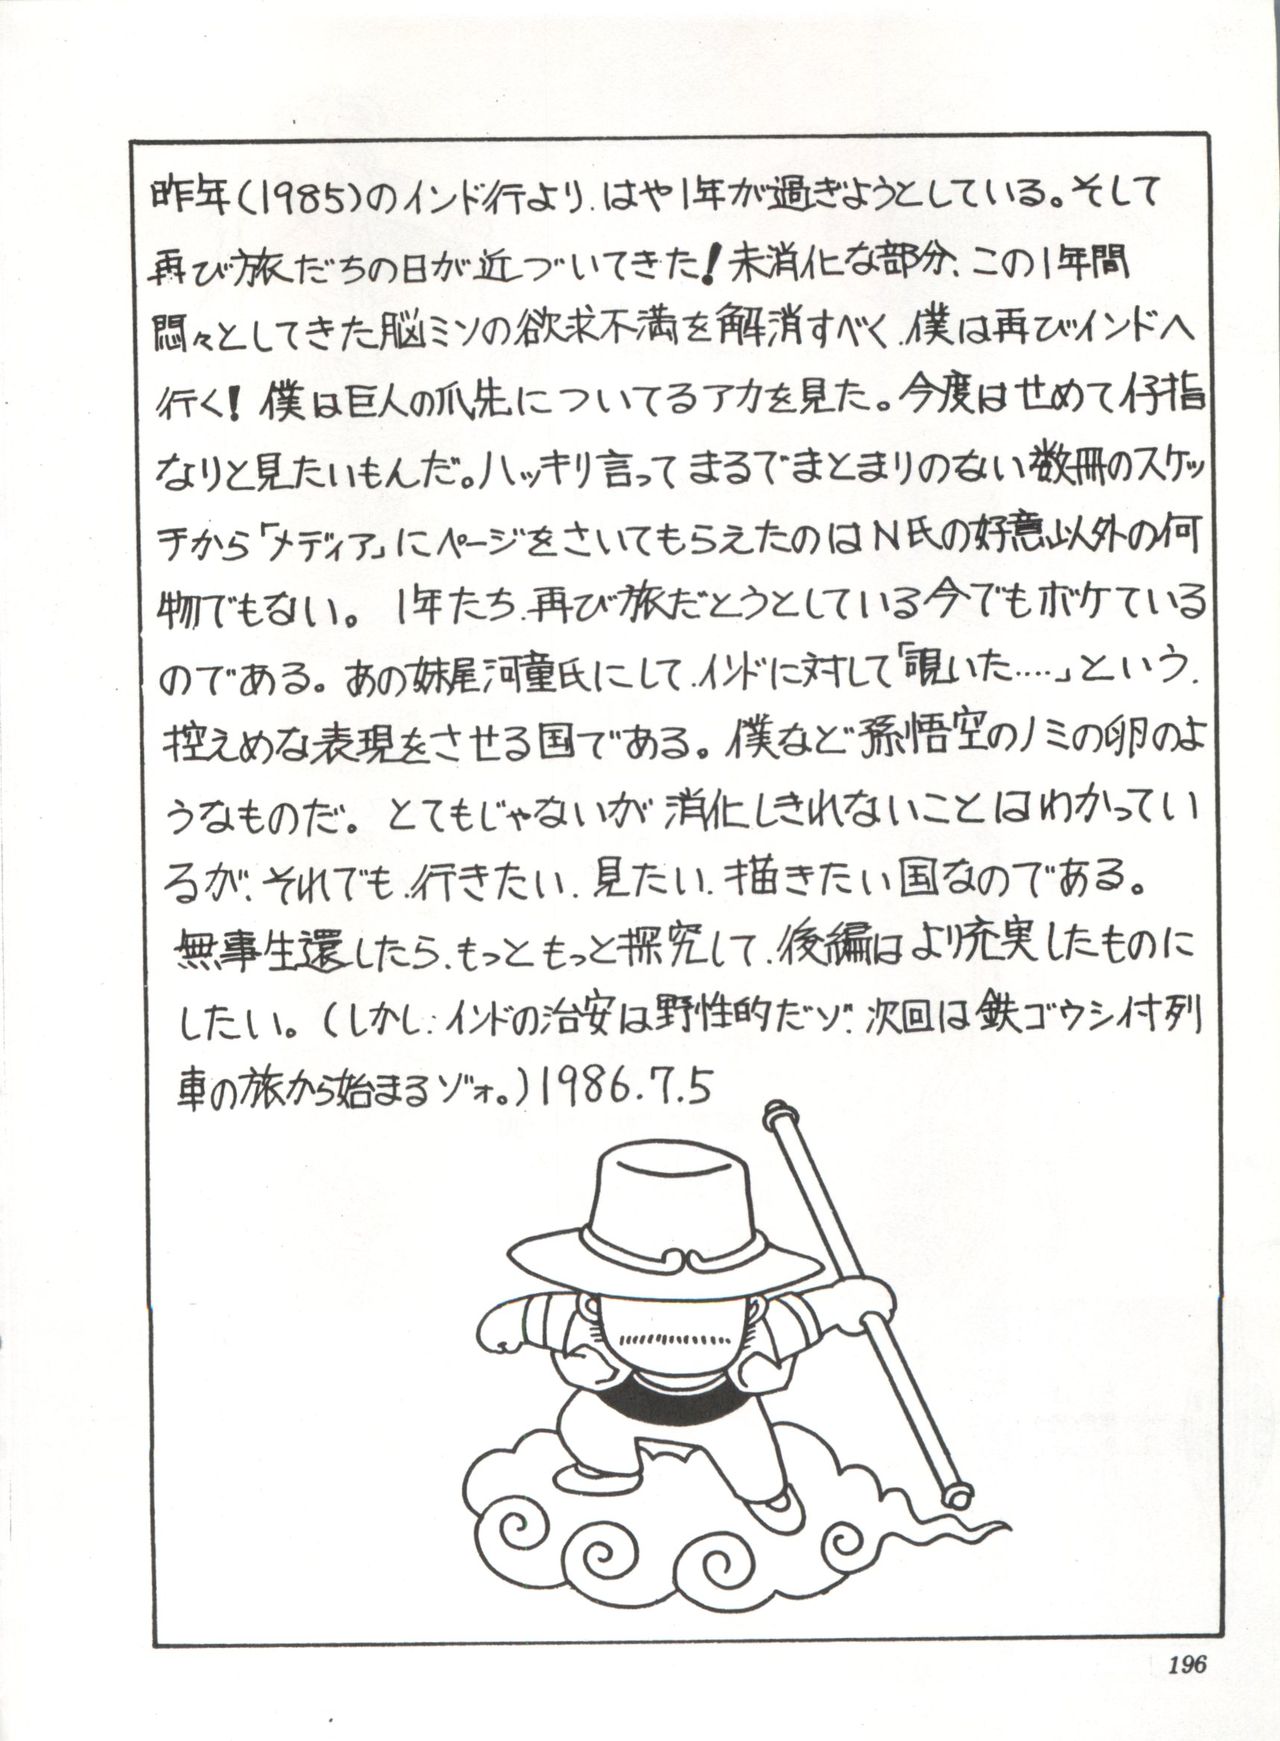 昨年(1985)のインド行より、はや1年が過ぎようとしている。そして
再び旅だちの日が近づいてきた!未消化な部分、この1年間
悶々としてきた脳ミソの欲求不満を解消すべく、僕は再びインドへ
行く!僕は巨人の爪先についてるアカを見た。今度はせめて仔指
なりと見たいもんだ。ハッキリ言ってまるでまとまりのない数冊のスケッ
チから「メディア」にページをさいてもらえたのはN氏の好意以外の何
物でもない。1年たち、再び旅だとうとしている今でもボケている
のである。あの妹尾河童氏にして、インドに対して「覗いた‥‥」という、
控えめな表現をさせる国である。僕など孫悟空のノミの卵のよ
うなものだ。とてもじゃないが消化しきれないことはわかってい
るが、それでも、行きたい、見たい、描きたい国なのである。
無事生還したら、もっともっと探究して、後編はより充実したものに
したい。(しかし、インドの治安は野性的だゾ、次回は鉄ゴウシ付列
車の旅から始まるゾォ。)1986.7.5
196